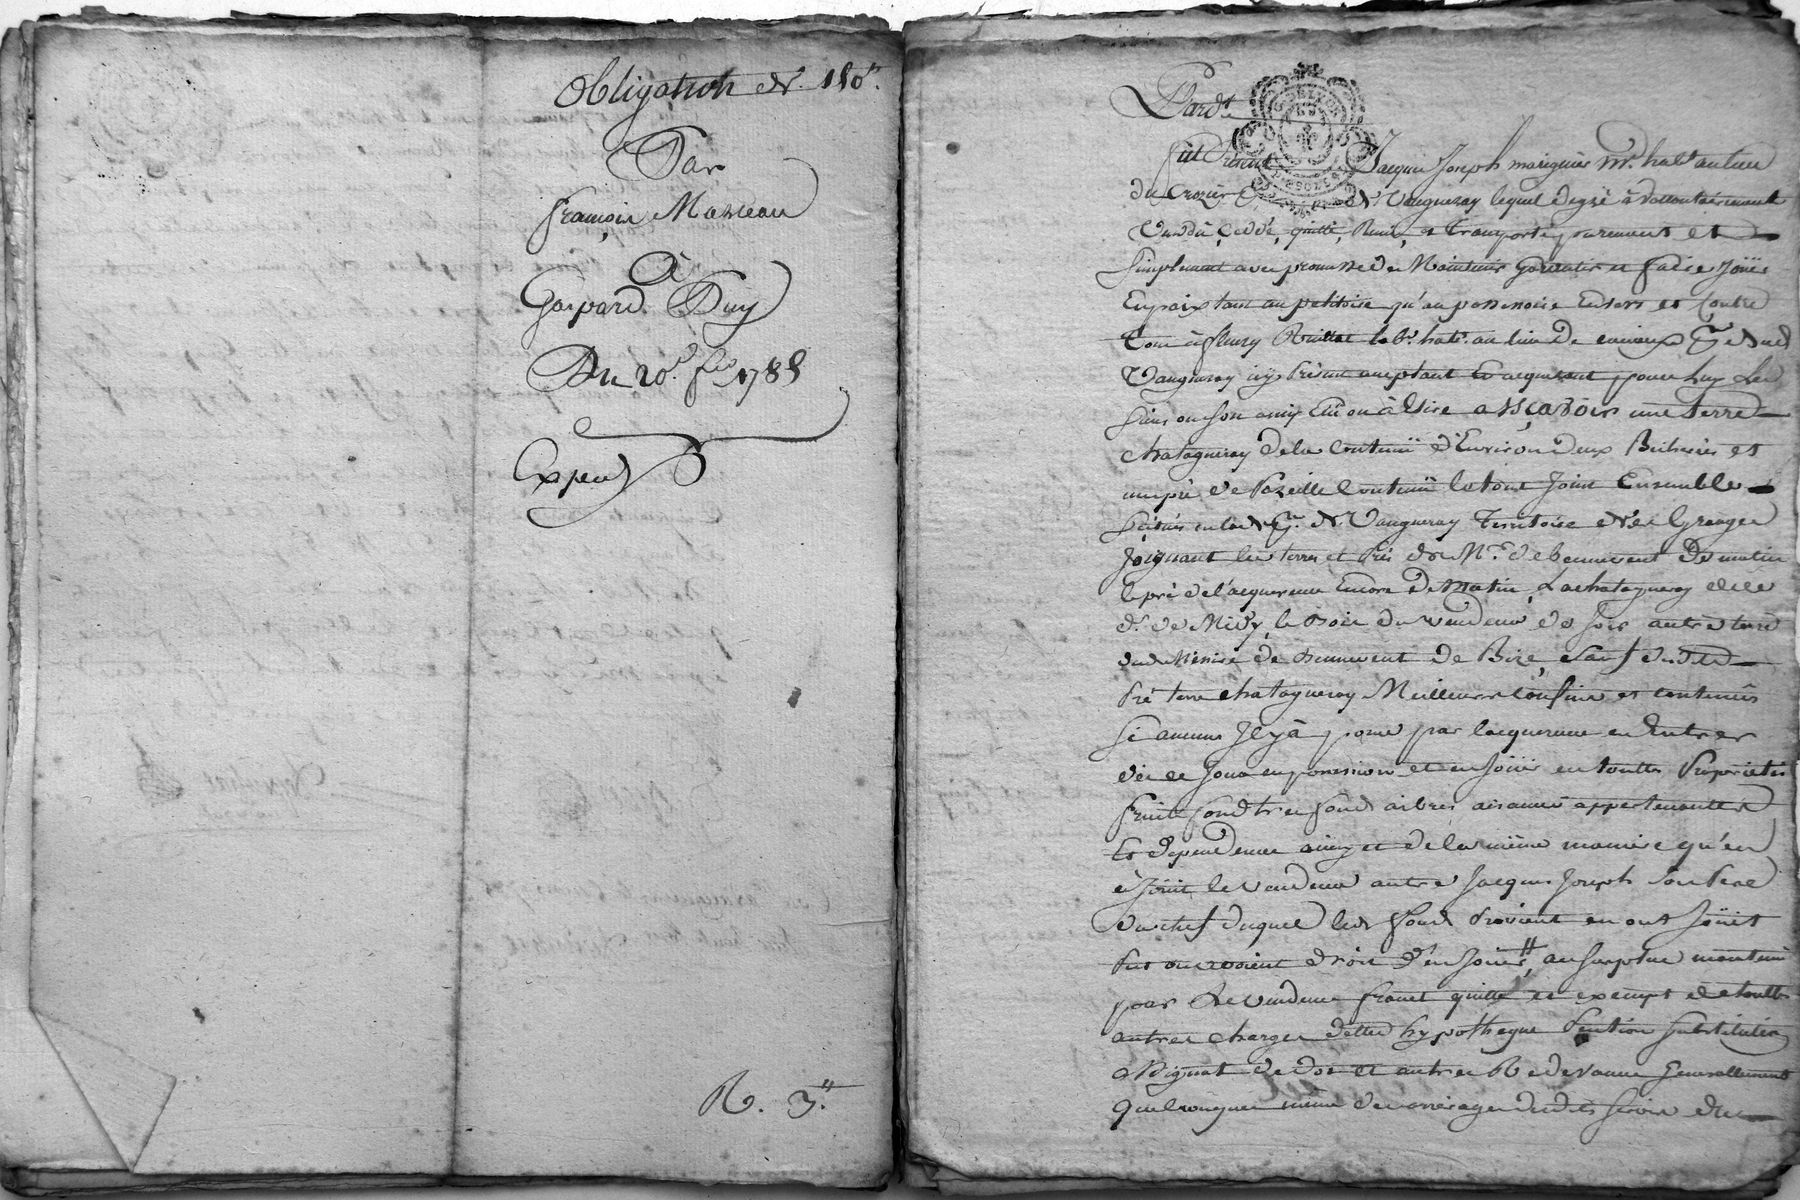 Obligation de 150ᵗᵗ
Par
françois Mazeau
à
Gaspard Puy
Du 20ᵉ fév 1788
Exped
R. 3ᵗᵗ
Pardᵗ
fut Présent Jacque Joseph mᵈ habᵗ au lieu
du Crozier de Vaugneray lequel de gré à vollontairement
Vendu, cedé, quitté, Remis, et Transporté purement et
Simplement avec promesse de Maintenir Garentir et faire Jouir
En paix tant au petitoire qu'au possessoire Envers et Contre
Tous à fleury labʳ habᵗ au lieu de
Vaugneray icy Présent acceptant et acquerant pour luy Les
Siens ou son amy Elû ou à Elire asscavoir une terre
chatagneray de la Contenüe d'Environ deux Bicherées et
un pré de Pareille Contenüe le tout Joint Ensemble
Scitués en lad. de Vaugneray Territoire des Granges
Joignant les terres et Prés de Mʳ de bennevent de matin
le pré de l'acquereur Encore de Matin, La chatagneray
de Midy, le Bois du vendeur de Soir autre terre
de benevent de Bize, Sauf desdits
Pré terre chatagneray Meilleurs Confins et contenües
Si aucuns Il y à pour par lacquereur en Entrer
dès ce Jour en possession et en Jouir en touttes Proprietés
fruits fonds tres fonds arbres aisances appartenances
Et dependences ainsy et de la même maniere qu'en
à Joüit le vendeur autre Jacques Joseph son Pere
du chef duquel led. fond Provient en ont Joüit
Pus ou avoient droit d'en Jouir, au surplus
pour Le vendeur franct quitte et exempt de touttes
autres charges dettes hypotheque Pention Substitution
de Dot et autres Redevance Generallement
quelconques même des arrerages desdits Servis